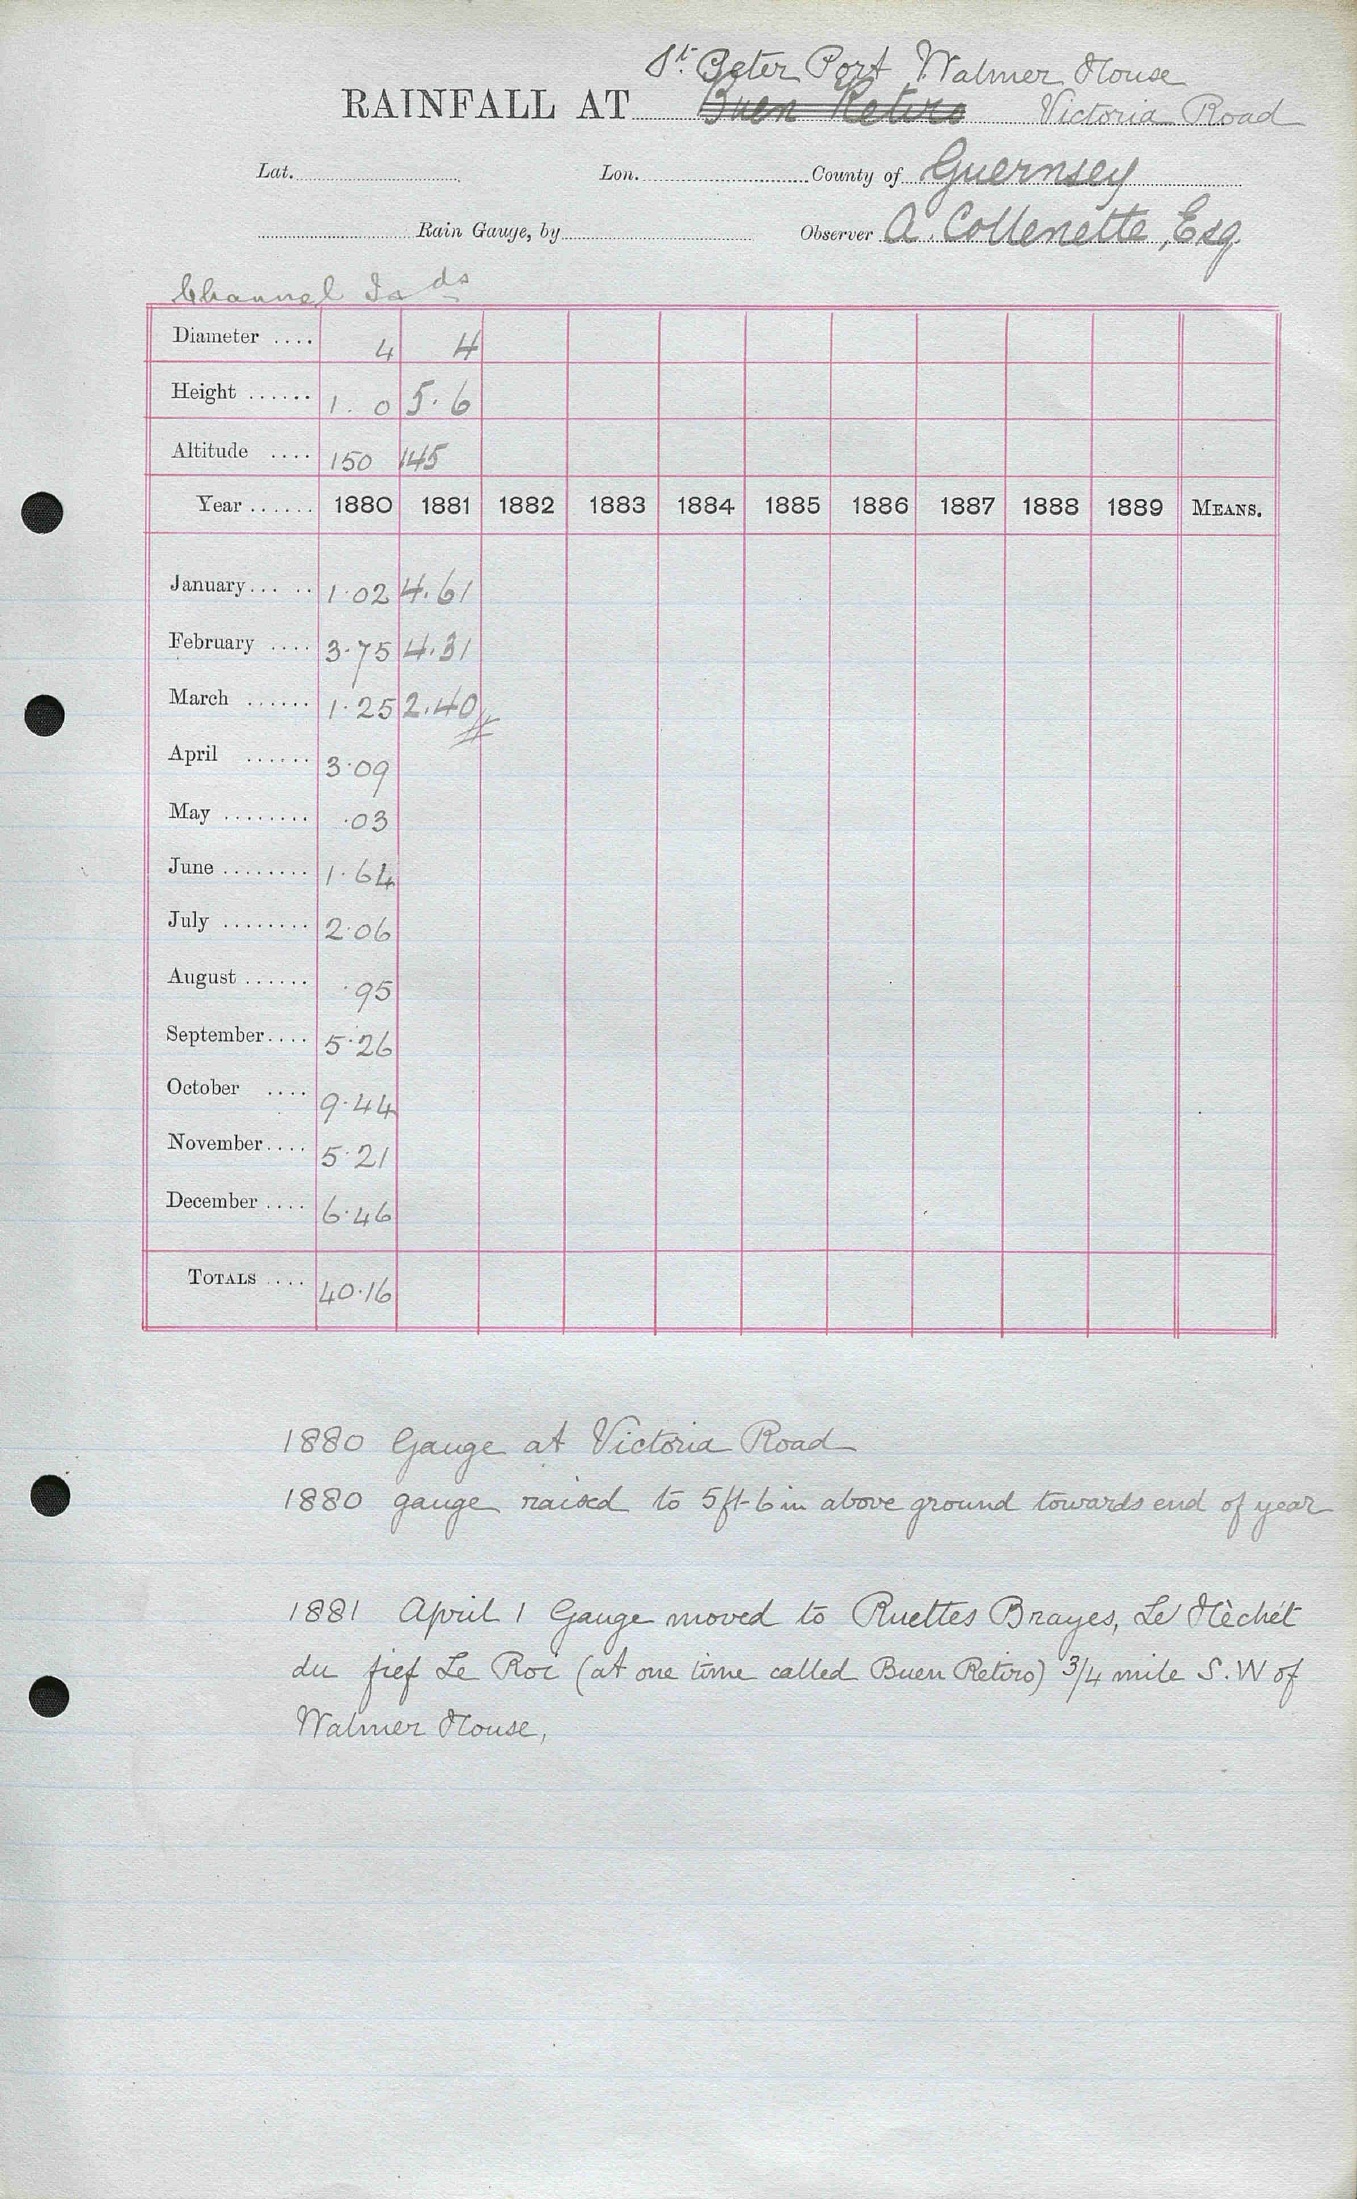 St. Peter Port Walmer House
RAINFALL AT Buen Retiro Victoria Road
Lat. Lon. County of Guernsey
Rain Gauge, by Observer A. Collenette, Esq.
Channel Is ds
Diameter .... 4 4
Height ...... 1. 0 5. 6
Altitude .... 150 145
Year ...... 1880 1881 1882 1883 1884 1885 1886 1887 1888 1889 MEANS.
January... .. 1.02 4.61
February .... 3.75 4.31
March ...... 1.25 2.40
April ...... 3.09
May ........ .03
June ........ 1.64
July ........ 2.06
August ...... .95
September.... 5.26
October .... 9.44
November.... 5.21
December .... 6.46
TOTALS .... 40.16
1880 Gauge at Victoria Road
1880 gauge raised to 5ft-6in above ground towards end of year
1881 April 1 Gauge moved to Ruettes Brayes, Le Hèchêt
du fief Le Roi (at one time called Buen Retiro) 3/4 mile S.W of
Walmer House,